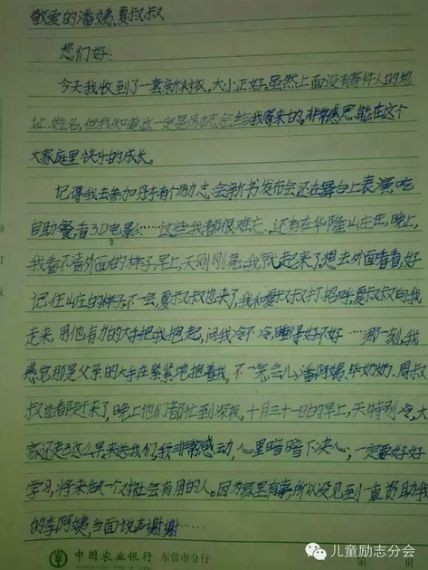 敬爱的潘姨、夏叔叔
您们好:
今天我收到了一套新衬衣,大小正好。虽然上面没有寄件人的地
址、姓名,但我知道这一定是励志会给我寄来的。非常感恩能在这个
大家庭里快乐的成长。
记得我去参加励志会新书发布会还在舞台上表演,吃
自助餐看3D电影……这些我都很难忘。还有在华隆山庄住,晚上,
我看不清外面的样子,早上,天刚刚亮我就起来了,想去外面看看,好
记住山庄的样子,不一会,夏叔叔也来了,我和夏叔叔打招呼,夏叔叔向我
走来,用他有力的大手把我抱起,问我冷不冷,睡得好不好……那一刻,我
感觉那是父亲的大手在紧紧地抱着我。不一会会儿潘阿姨、毕奶奶、周叔
叔也都起来了,晚上他们都忙到深夜,十月三十一日的早上,天特别冷,大
家还起这么早来送我们,我非常感动,心里暗暗下决心,一定要好好
学习,将来做一个对社会有用的人。因为家里有事所以没见到一直资助我
的李阿姨,当面说声谢谢……
中国农业银行 东营市分行
第 页
儿童励志分会